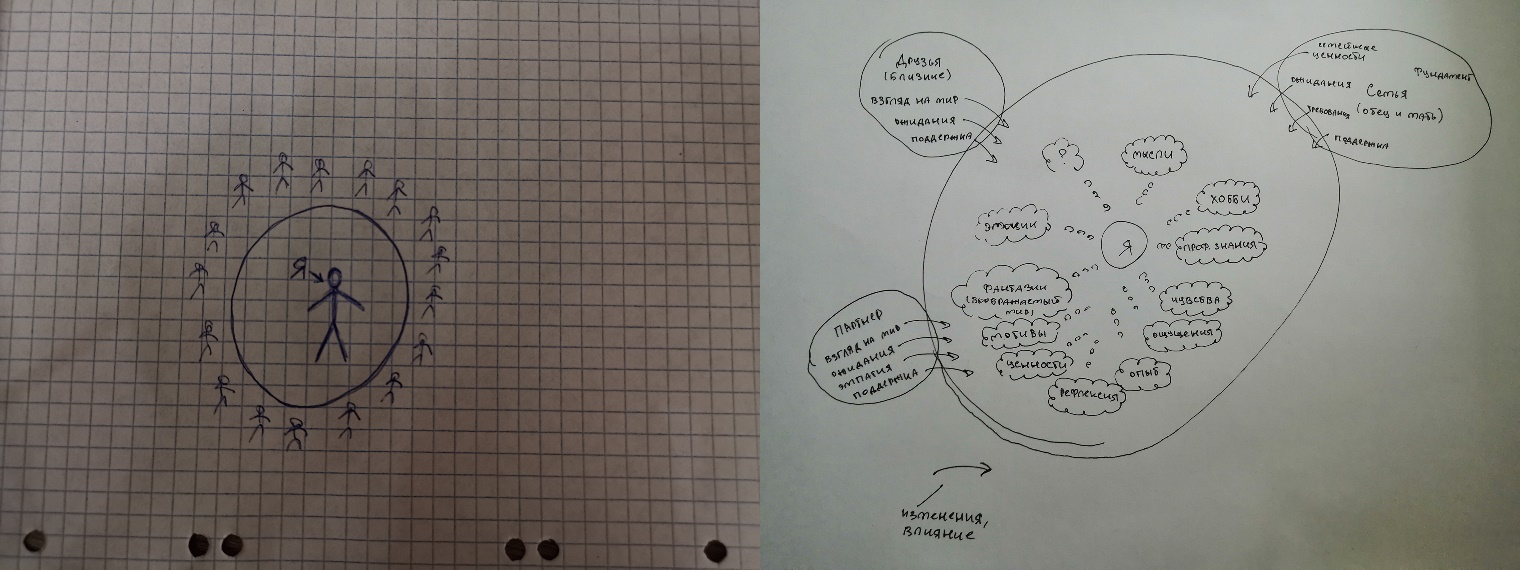 Я
Друзья
(близкие)
взгляд на мир
ожидания
поддержка
семейные
ценности
фундамент
ожидания
Семья
требования
(отец и мать)
поддержка
?
мысли
хобби
эмоции
Я
проф. знания
фантазии
(воображаемый
мир)
чувства
мотивы
ощущения
ценности
опыт
рефлексия
партнер
взгляд на мир
ожидания
эмпатия
поддержка
изменения,
влияние